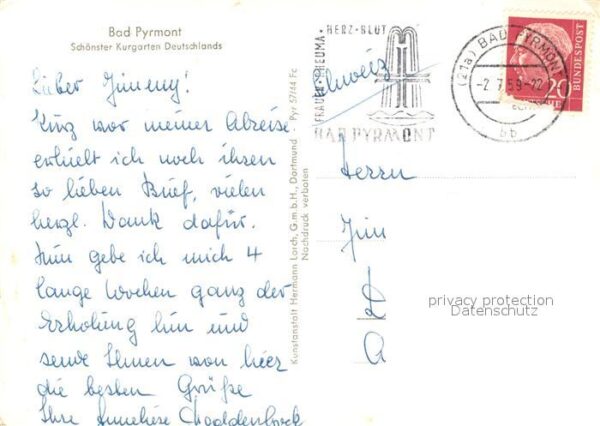 Bad Pyrmont
Schönster Kurgarten Deutschlands
Lieber Jimmy!
Kurz vor meiner Abreise
erhielt ich noch ihren
so lieben Brief, vielen
herzl. Dank dafür.
Nun gebe ich mich 4
lange Wochen ganz der
Erholung hin und
sende Ihnen von hier
die besten Grüße
Ihre Anneliese
Kunstanstalt Hermann Lorch, G.m.b.H., Dortmund - Pyr 57/44 Fc
Nachdruck verboten
FRAUEN RHEUMA
HERZ-BLUT
BAD PYRMONT
Schweiz
(21a) BAD PYRMONT
-2.7.59-22
bb
20
DEUTSCHE BUNDESPOST
Herrn
Jim
privacy protection
Datenschutz